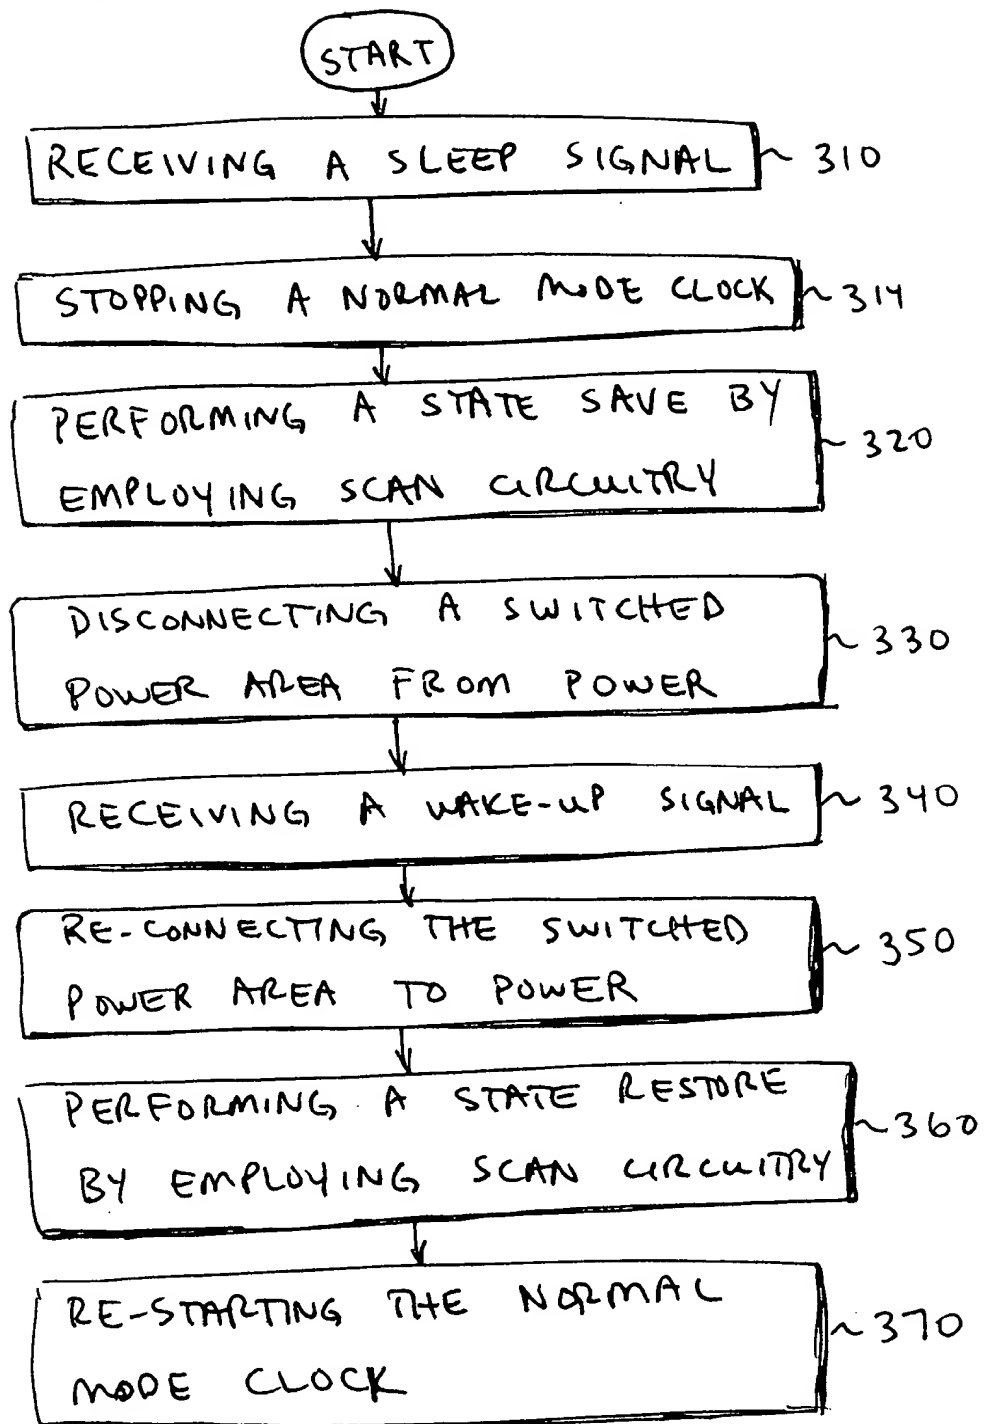 START
RECEIVING A SLEEP SIGNAL 310
STOPPING A NORMAL MODE CLOCK 314
PERFORMING A STATE SAVE BY
EMPLOYING SCAN CIRCUITRY
320
DISCONNECTING A SWITCHED
POWER AREA FROM POWER
330
RECEIVING A WAKE-UP SIGNAL 340
RE-CONNECTING THE SWITCHED
POWER AREA TO POWER
350
PERFORMING A STATE RESTORE
BY EMPLOYING SCAN CIRCUITRY
360
RE-STARTING THE NORMAL
MODE CLOCK
370